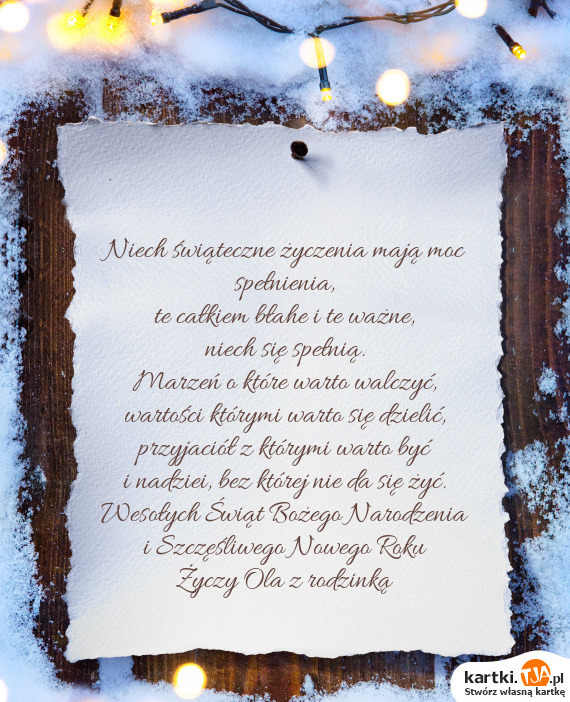 Niech świąteczne życzenia mają moc
spełnienia,
te całkiem błahe i te ważne,
niech się spełnią.
Marzeń o które warto walczyć,
wartości którymi warto się dzielić,
przyjaciół z którymi warto być
i nadziei, bez której nie da się żyć.
Wesołych Świąt Bożego Narodzenia
i Szczęśliwego Nowego Roku
Życzy Ola z rodzinką
kartki.TJA.pl
Stwórz własną kartkę